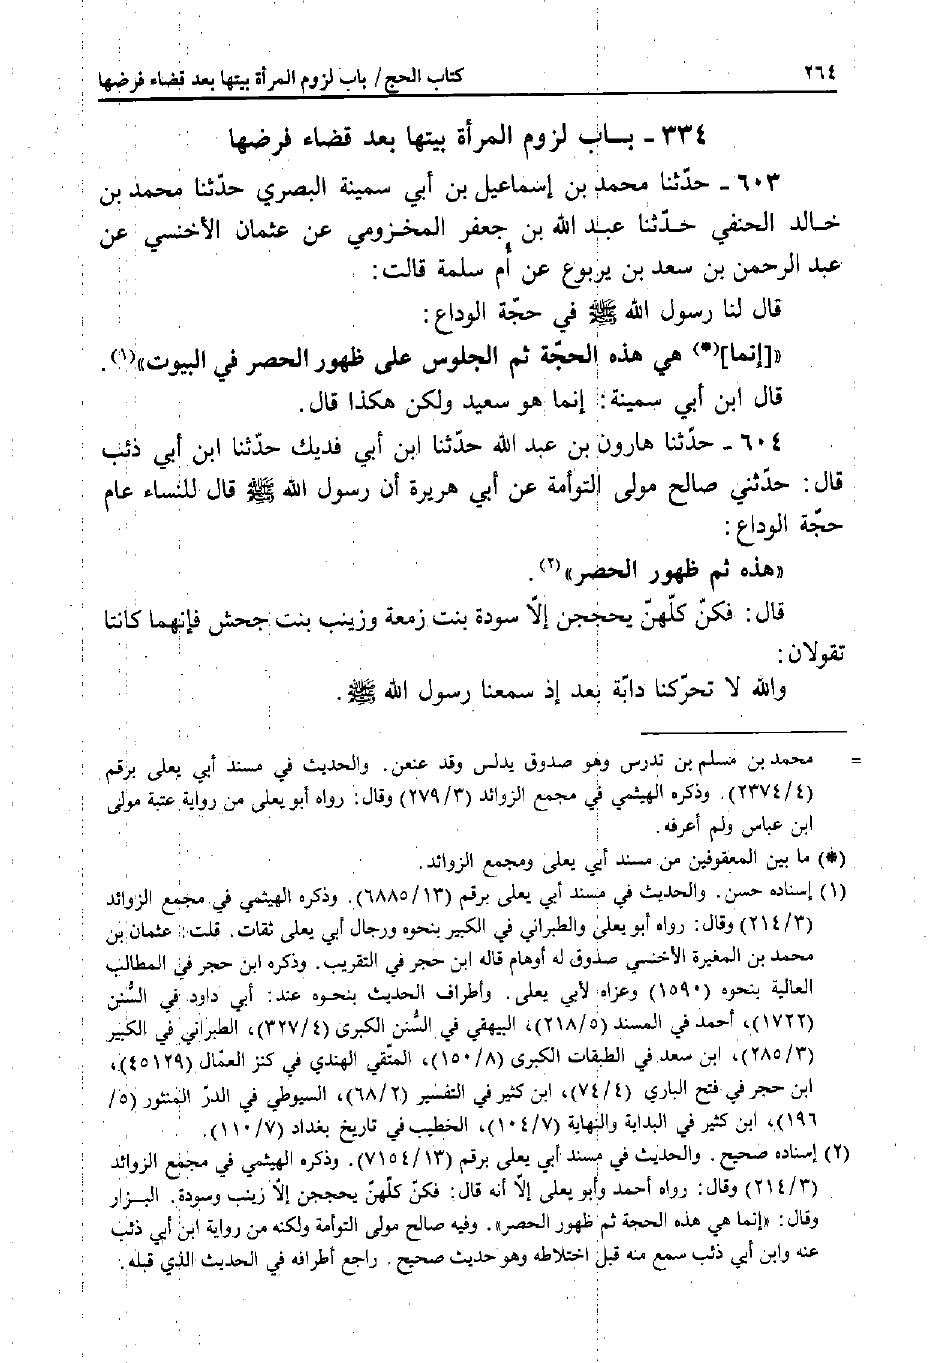 ٢٦٤ كتاب الحج/ باب لزوم المرأة بيتها بعد قضاء فرضها
٣٣٤ - بـــاب لزوم المرأة بيتها بعد قضاء فرضها
٦٠٣ - حدّثنا محمد بن إسماعيل بن أبي سمينة البصري حدّثنا محمد بن
خـالد الحنفي حـدّثنا عبـد الله بن جعفر المخـزومي عن عثمان الأخنسي عن
عبد الرحمن بن سعد بن يربوع عن أم سلمة قالت:
قال لنا رسول الله ﷺ في حجّة الوداع:
«[إنما](*) هي هذه الحجّة ثم الجلوس على ظهور الحصر في البيوت»(١).
قال ابن أبي سمينة: إنما هو سعيد ولكن هكذا قال.
٦٠٤ - حدّثنا هارون بن عبد الله حدّثنا ابن أبي فديك حدّثنا ابن أبي ذئب
قال: حدّثني صالح مولى التوأمة عن أبي هريرة أن رسول الله ﷺ قال للنساء عام
حجّة الوداع:
«هذه ثم ظهور الحصر»(٢).
قال: فكنّ كلّهنّ يحججن إلّا سودة بنت زمعة وزينب بنت جحش فإنهما كانتا
تقولان:
والله لا تحرّكنا دابّة بعد إذ سمعنا رسول الله ﷺ.
= محمد بن مسلم بن تدرس وهو صدوق يدلس وقد عنعن. والحديث في مسند أبي يعلى برقم
(٢٣٧٤/٤). وذكره الهيثمي في مجمع الزوائد (٢٧٩/٣) وقال: رواه أبو يعلى من رواية عتبة مولى
ابن عباس ولم أعرفه.
(*) ما بين المعقوفين من مسند أبي يعلى ومجمع الزوائد.
(١) إسناده حسن. والحديث في مسند أبي يعلى برقم (٦٨٨٥/١٣). وذكره الهيثمي في مجمع الزوائد
(٢١٤/٣) وقال: رواه أبو يعلى والطبراني في الكبير بنحوه ورجال أبي يعلى ثقات. قلت: عثمان بن
محمد بن المغيرة الأخنسي صدوق له أوهام قاله ابن حجر في التقريب. وذكره ابن حجر في المطالب
العالية بنحوه (١٥٩٠) وعزاه لأبي يعلى. وأطراف الحديث بنحـوه عند: أبي داود في السُّنن
(١٧٢٢)، أحمد في المسند (٢١٨/٥)، البيهقي في السُّنن الكبرى (٣٢٧/٤)، الطبراني في الكبير
(٢٨٥/٣)، ابن سعد في الطبقات الكبرى (١٥٠/٨)، المتّقي الهندي في كنز العمّال (٤٥١٢٩)،
ابن حجر في فتح الباري (٧٤/٤)، ابن كثير في التفسير (٦٨/٢)، السيوطي في الدرّ المنثور (٥/
١٩٦)، ابن كثير في البداية والنهاية (١٠٤/٧)، الخطيب في تاريخ بغداد (١١٠/٧).
(٢) إسناده صحيح. والحديث في مسند أبي يعلى برقم (٧١٥٤/١٣). وذكره الهيثمي في مجمع الزوائد
(٢١٤/٣) وقال: رواه أحمد وأبو يعلى إلّا أنه قال: فكنّ كلّهنّ يحججن إلّا زينب وسودة. البـزار
وقال: «إنما هي هذه الحجة ثم ظهور الحصر». وفيه صالح مولى التوأمة ولكنه من رواية ابن أبي ذئب
عنه وابن أبي ذئب سمع منه قبل اختلاطه وهو حديث صحيح. راجع أطرافه في الحديث الذي قبله.